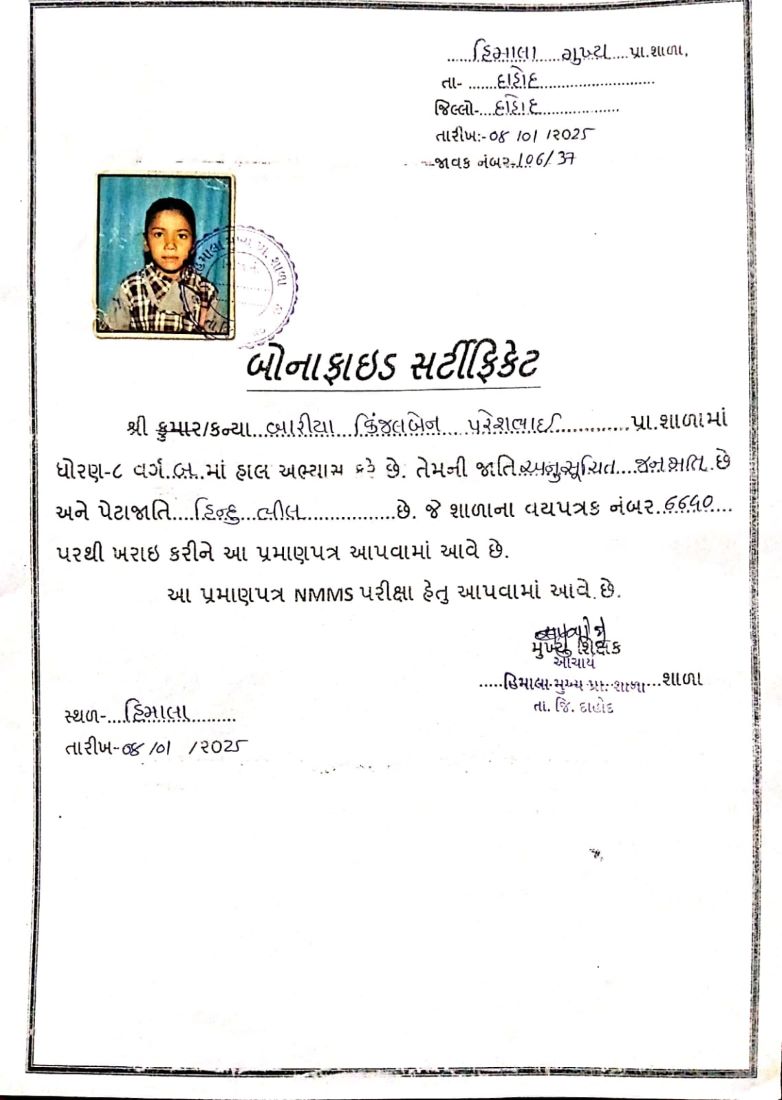 હિમાલા મુખ્ય પ્રા.શાળા,
તા- દાહોદ
જિલ્લો- દાહોદ
તારીખ:-08/01/2025
જાવક નંબર-106/37
હિમાલા મુખ્ય પ્રા. શાળા
બોનાફાઇડ સર્ટીફિકેટ
શ્રી કુમાર/કન્યા બારીયા કિંજલબેન પરેશભાઈ પ્રા.શાળામાં
ધોરણ-૮ વર્ગ બ માં હાલ અભ્યાસ કરે છે. તેમની જાતિ અનુસૂચિત જનજાતિ છે
અને પેટાજાતિ હિન્દુ ભીલ છે. જે શાળાના વયપત્રક નંબર
પરથી ખરાઇ કરીને આ પ્રમાણપત્ર આપવામાં આવે છે.
આ પ્રમાણપત્ર NMMS પરીક્ષા હેતુ આપવામાં આવે છે.
મુખ્ય શિક્ષક
આચાર્ય
હિમાલા મુખ્ય પ્રા. શાળા શાળા
તા. જિ. દાહોદ
સ્થળ- હિમાલા
તારીખ-08/01/૨૦25